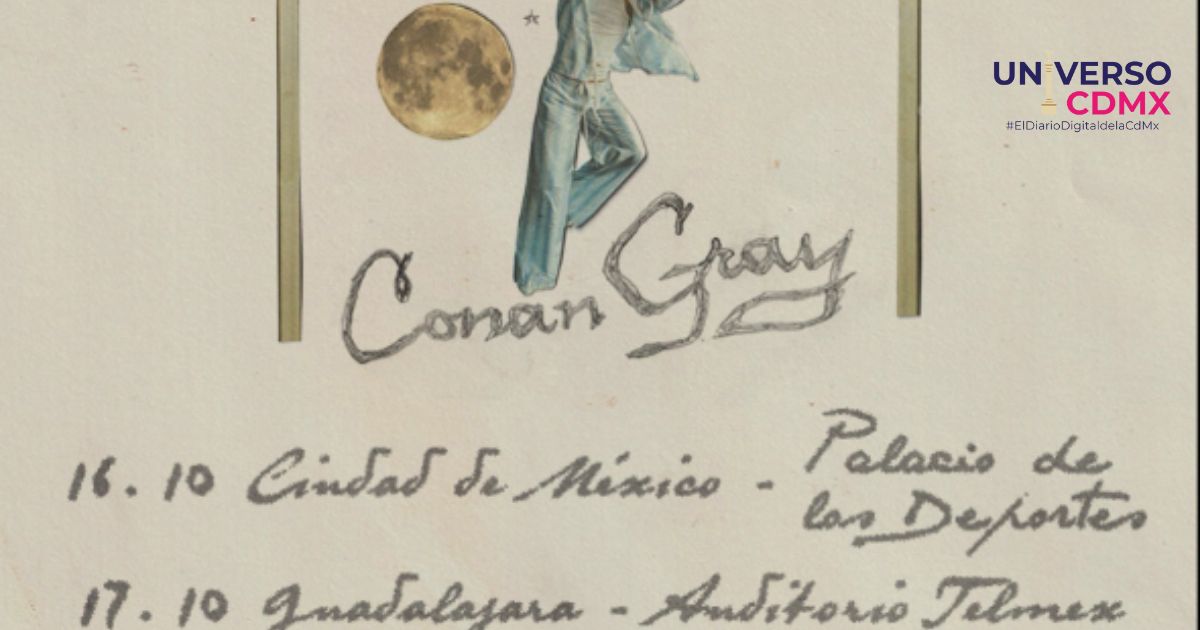 UNIVERSO
CDMX
#ElDiarioDigitaldelaCdMx
Conan Gray
16.10 Ciudad de México - Palacio de
los Deportes
17.10 Guadalajara - Auditorio Telmex